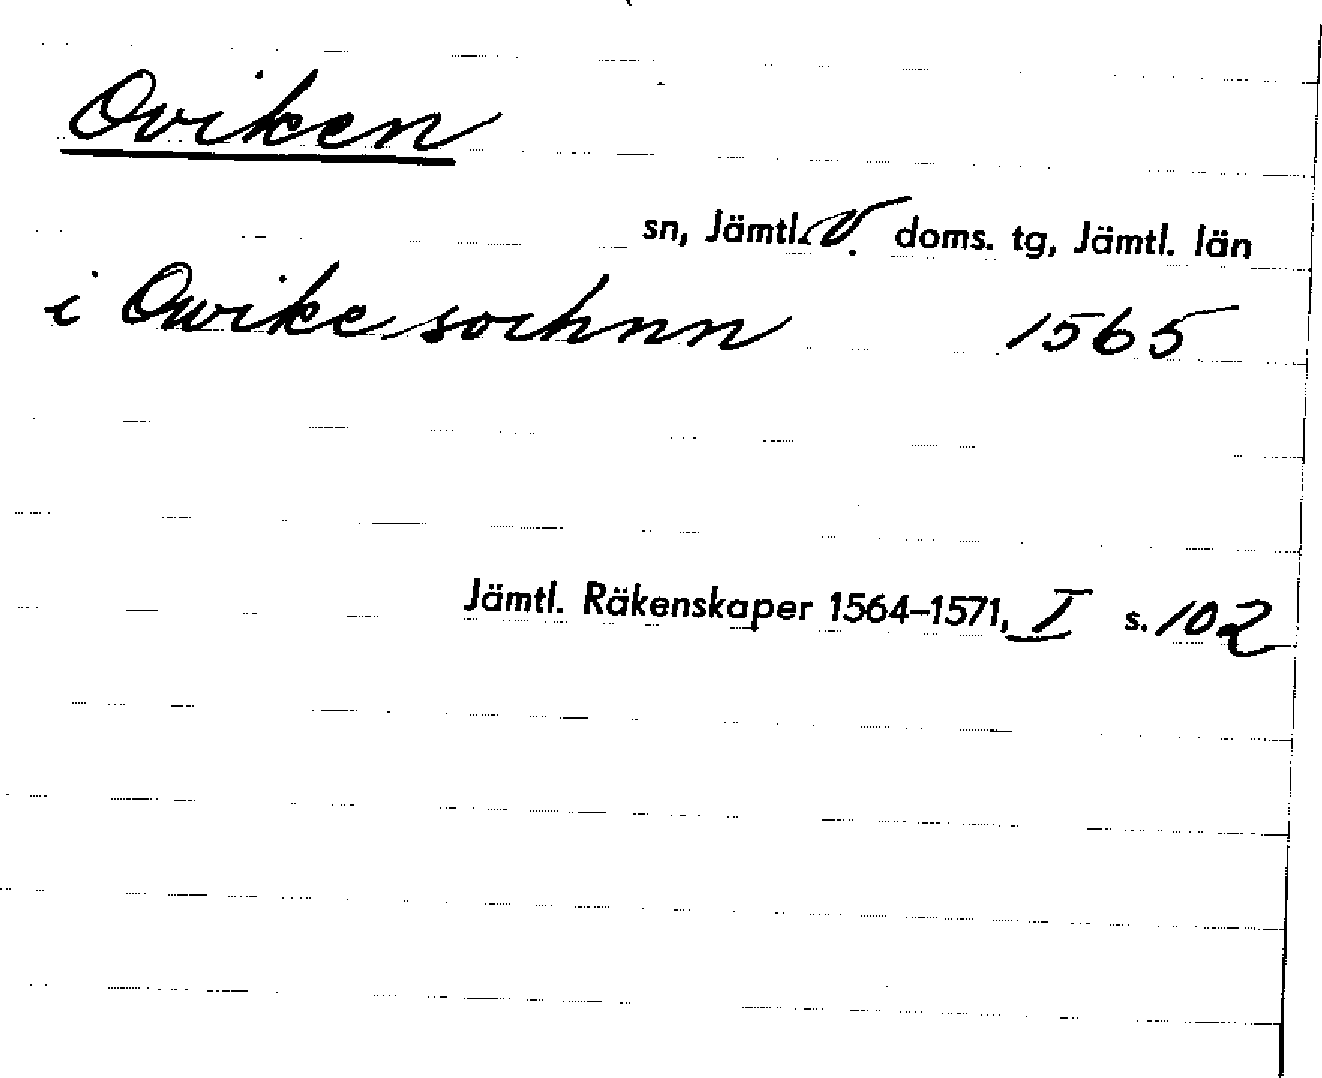 Oviken
sn, Jämtl. V. doms. tg, Jämtl. län
i Owike sochnn 1565
Jämtl. Räkenskaper 1564–1571, I s. 102